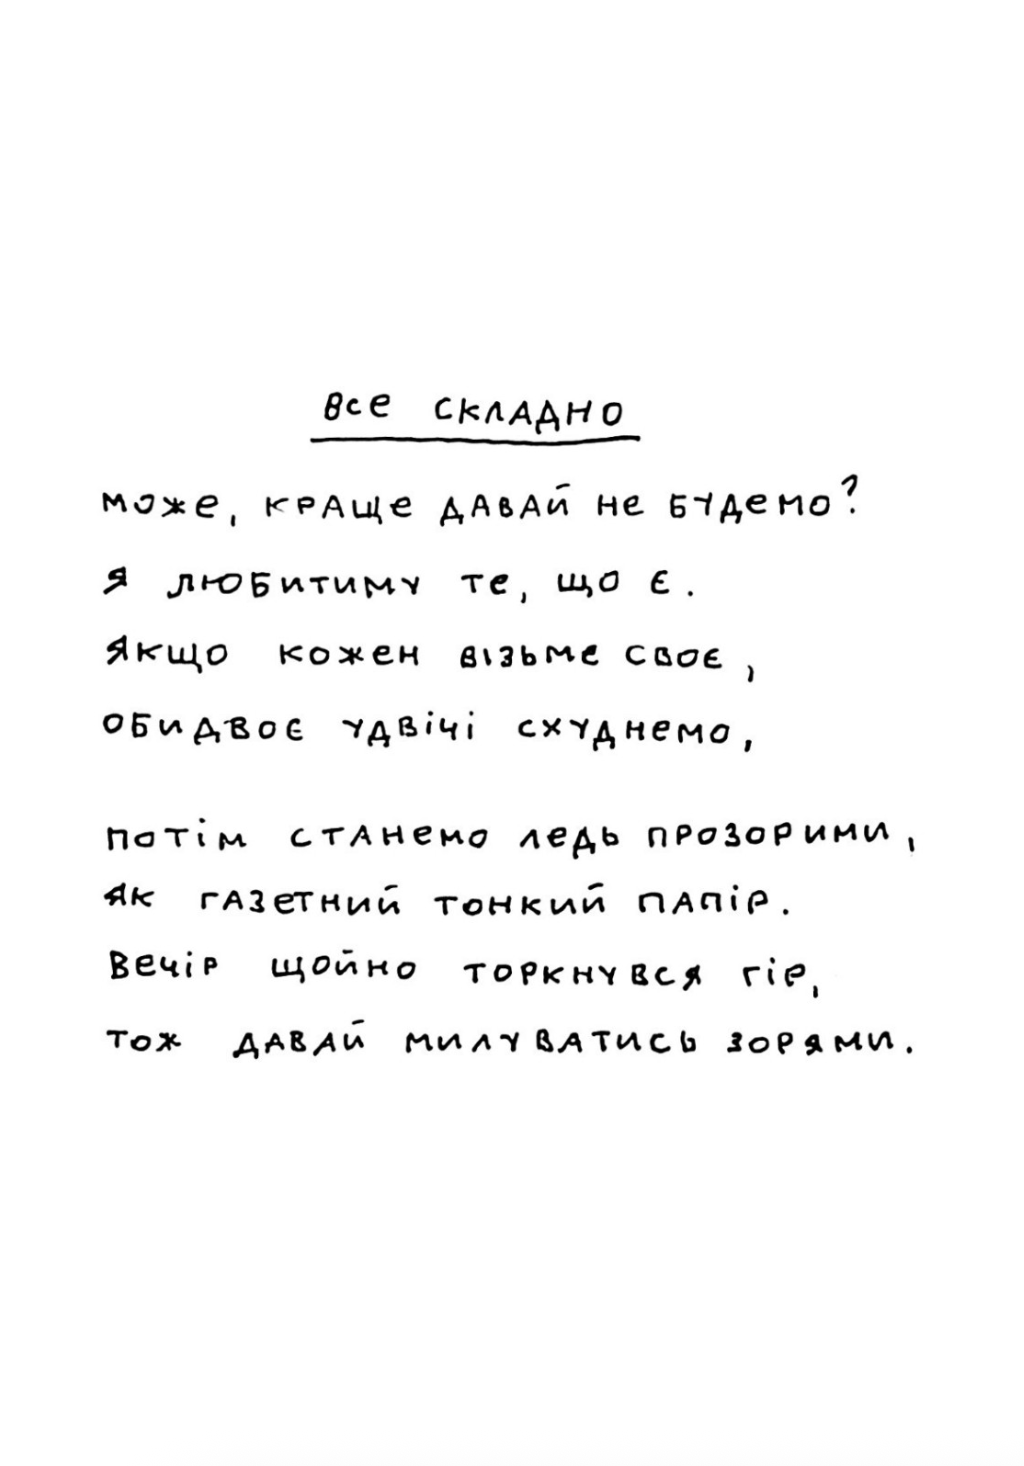 все складно
може, краще давай не будемо?
я любитиму те, що є.
якщо кожен візьме своє,
обидвоє удвічі схуднемо,
потім станемо ледь прозорими,
як газетний тонкий папір.
вечір щойно торкнувся гір,
тож давай милуватись зорями.